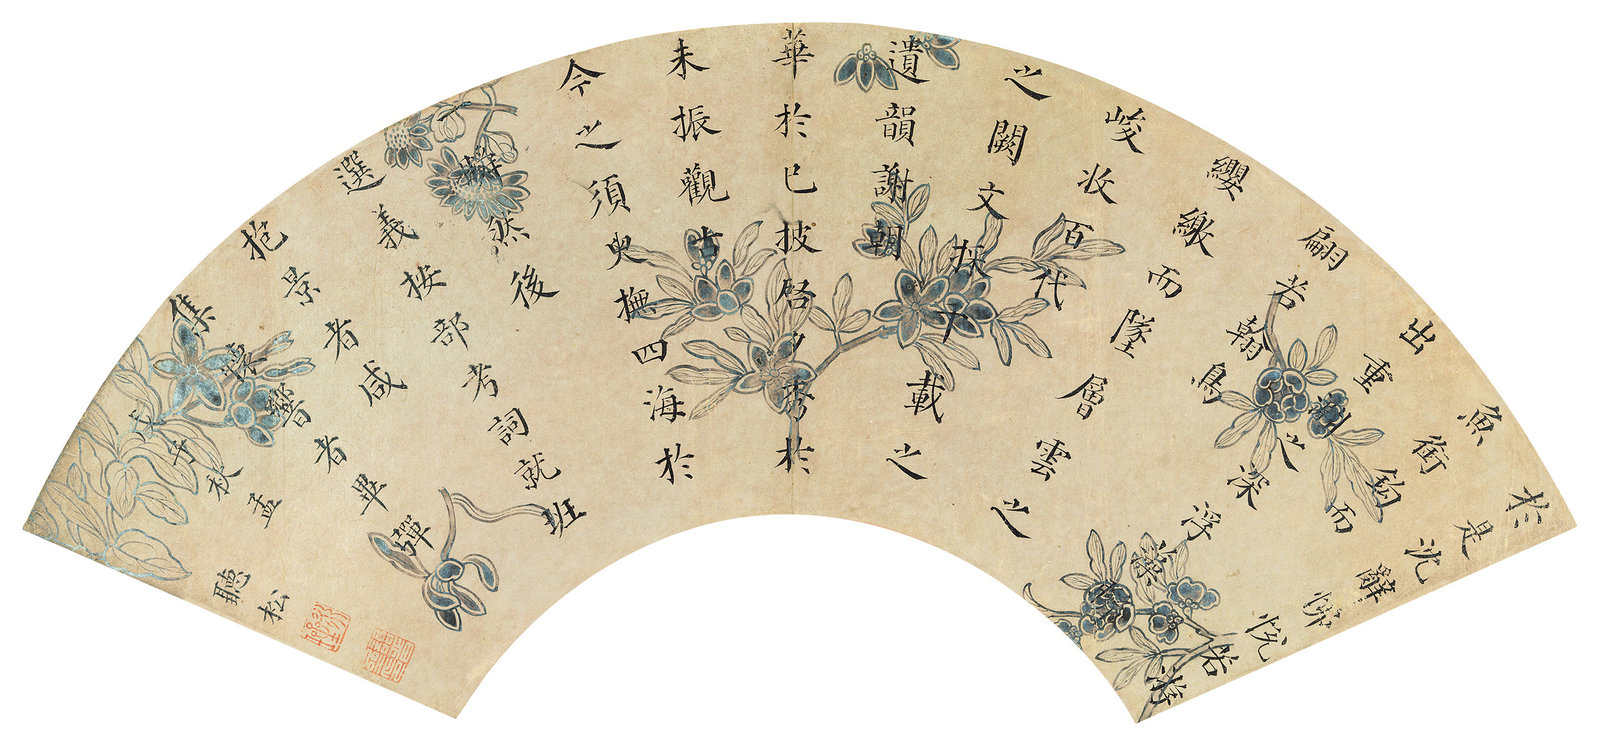 於是沈辭怫悅若游
魚銜鉤而
出重淵之深浮藻聯
翩若翰鳥
纓繳而墜層雲之
峻收百代
之闕文採千載之
遺韻謝朝
華於已披啓夕秀於
未振觀古
今之須臾撫四海於
一瞬然後
選義按部考詞就班
抱景者咸
集懷響者畢彈
午秋孟
聽松